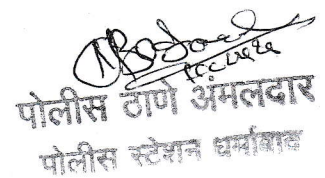 पोलीस ठाणे अंमलदार
पोलीस स्टेशन धर्माबाद